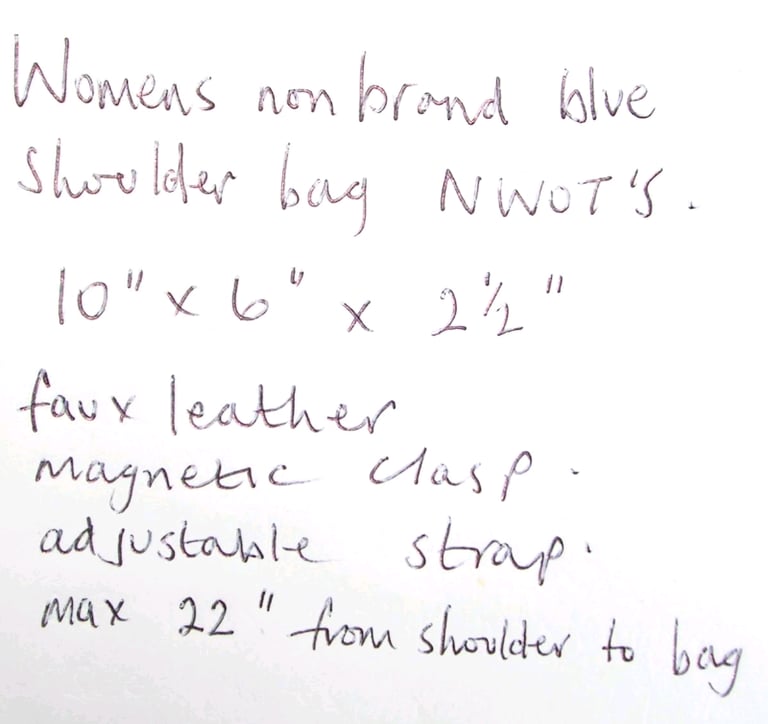 Womens non brand blue
shoulder bag NWOT'S.
10" x 6" x 2½"
faux leather
magnetic clasp.
adjustable strap.
max 22" from shoulder to bag